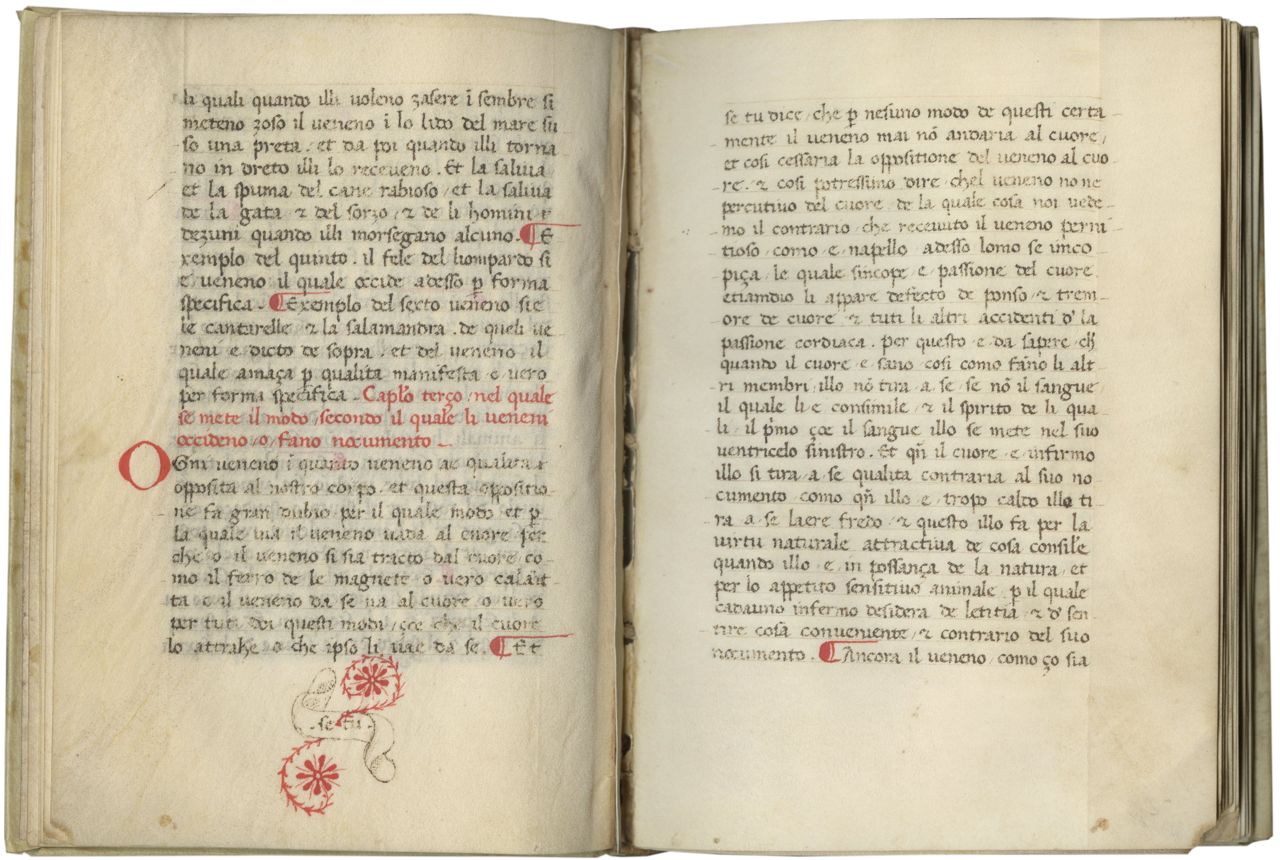 li quali quando illi voleno zasere ī sembre si
meteno zoso il veneno ī lo lido del mare su
so una preta . et da poi quando illi torna
no in dreto illi lo receveno . Et la saliva
et la spuma del cane rabioso / et la saliva
de la gata / ⁊ del sorzo / ⁊ de li homini
dezuni quando illi morsegano alcuno . ¶ E
xemplo del quinto . il fele del liompardo si
e veneno il quale occide adesso ꝑ forma
specifica . ¶ Exemplo del sexto veneno sie
le cantarelle / ⁊ la salamandra . de queli ve
neni e dicto de sopra . et del veneno il
quale amaça ꝑ qualita manifesta / e vero
per forma specifica . Caplo terço / nel quale
se mete il modo / secondo il quale li veneni
occideno / o / fano nocumento
Ogni veneno ī quanto veneno ae qualita
opposita al nostro corpo . et questa oppositio
ne fa gran dubio / per il quale modo et ꝑ
la quale via il veneno vada al cuore per
che / o il veneno si sia tracto dal cuore co
mo il ferro de le magnete / o vero calamit
ta / e il veneno da se va al cuore / o vero
per tuti doi questi modi / çoe che il cuore
lo attrahe / o che ipso li vae da se . ¶ Et
. se tu .
se tu dice / che ꝑ nesuno modo de questi certa
mente il veneno mai nō andaria al cuore /
et cosi cessaria la oppositione del veneno al cuo
re . ⁊ cosi potressimo dire / chel veneno none
percutivo del cuore / de la quale cosa noi vede
mo il contrario / che recevuto il veneno perni
tioso / como e napello / adesso lomo se inco
piça / le quale sincope / e / passione del cuore
etiamdio li appare defecto de ponso / ⁊ trem
ore de cuore / ⁊ tuti li altri accidenti d' la
passione cordiaca . per questo / e / da sapere / ch̄
quando il cuore / e / sano / cosi como fāno li alt
ri membri / illo nō tira / a / se / se nō il sangue
il quale li e consimile / ⁊ il spirito de li qua
li / il p̄mo çoe il sangue illo se mete nel suo
ventricelo sinistro . Et qn̄ il cuore / e / infirmo
illo si tira / a / se qualita contraria al suo no
cumento / como qn̄ illo / e / tropo caldo illo ti
ra / a / se laere fredo / ⁊ questo illo fa per la
virtu naturale attractiva de cosa consile
quando illo / e / in possança de la natura / et
per lo appetito sensitivo animale / ꝑ il quale
cadauno infermo desidera de letitia / ⁊ d' sen
tire cosa conveniente / ⁊ contrario del suo
nocumento . ¶ Ancora il veneno / como ço sia